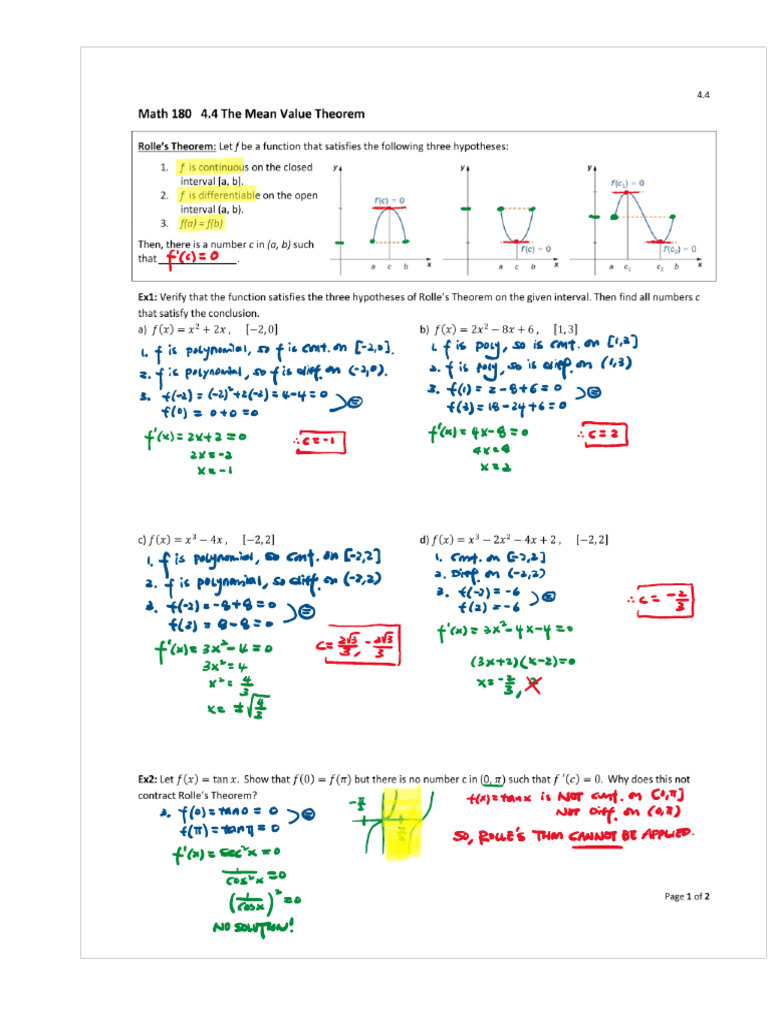 4.4
Math 180 4.4 The Mean Value Theorem
Rolle's Theorem: Let f be a function that satisfies the following three hypotheses:
1. f is continuous on the closed
interval [a, b].
2. f is differentiable on the open
interval (a, b).
3. f(a) = f(b)
Then, there is a number c in (a, b) such
that f'(c) = 0.
y
f'(c) = 0
a c b x
y
f'(c) = 0
a c b x
y
f'(c₁) = 0
f'(c₂) = 0
a c₁ c₂ b x
Ex1: Verify that the function satisfies the three hypotheses of Rolle's Theorem on the given interval. Then find all numbers c
that satisfy the conclusion.
a) f(x) = x² + 2x, [−2, 0]
1. f is polynomial, so f is cont. on [-2,0].
2. f is polynomial, so f is diff. on (-2,0).
3. f(-2) = (-2)²+2(-2) = 4-4=0
f(0) = 0+0=0
=
f'(x) = 2x+2 = 0
2x = -2
x = -1
∴ c = -1
b) f(x) = 2x² − 8x + 6, [1,3]
1. f is poly, so is cont. on [1,3]
2. f is poly, so is diff on (1,3)
3. f(1) = 2-8+6=0
f(3) = 18-24+6=0
=
f'(x) = 4x-8=0
4x=8
x=2
∴ c=2
c) f(x) = x³ − 4x, [−2,2]
1. f is polynomial, so cont. on [-2,2]
2. f is polynomial, so diff. on (-2,2)
3. f(-2) = -8+8=0
f(2) = 8-8=0
=
f'(x) = 3x²-4=0
3x²=4
x² = 4/3
x = ±√4/3
c = 2√3/3, -2√3/3
d) f(x) = x³ − 2x² − 4x + 2, [−2,2]
1. Cont. on [-2,2]
2. Diff. on (-2,2)
3. f(-2) = -6
f(2) = -6
=
f'(x) = 3x²-4x-4=0
(3x+2)(x-2)=0
x = -2/3, 2
∴ c = -2/3
Ex2: Let f(x) = tan x. Show that f(0) = f(π) but there is no number c in (0, π) such that f '(c) = 0. Why does this not
contract Rolle's Theorem?
3. f(0) = tan0 = 0
f(π) = tanπ = 0
=
f'(x) = sec²x = 0
1/cos²x = 0
(1/cosx)² = 0
NO SOLUTION!
f(x) = tanx is NOT cont. on [0,π]
NOT Diff. on (0,π)
SO, ROLLE'S THM CANNOT BE APPLIED.
Page 1 of 2